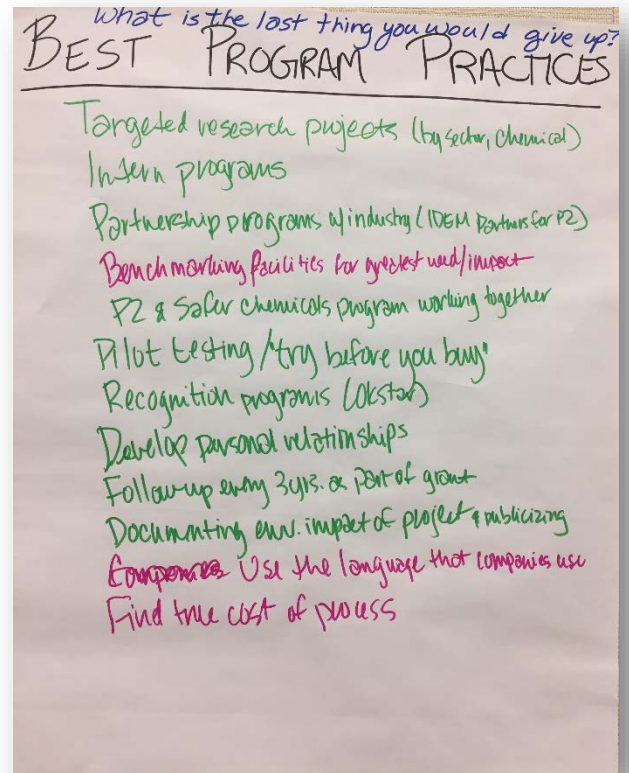 What is the last thing you would give up?
BEST PROGRAM PRACTICES
Targeted research projects (by sector, chemical)
Intern programs
Partnership programs w/industry (IDEM Partners for P2)
Benchmarking facilities for greatest need/impact
P2 & Safer Chemicals program working together
Pilot testing / "try before you buy"
Recognition programs (OKstar)
Develop personal relationships
Follow up every 3yrs. as part of grant
Documenting env. impact of project & publicizing
Companies Use the language that companies use
Find true cost of process